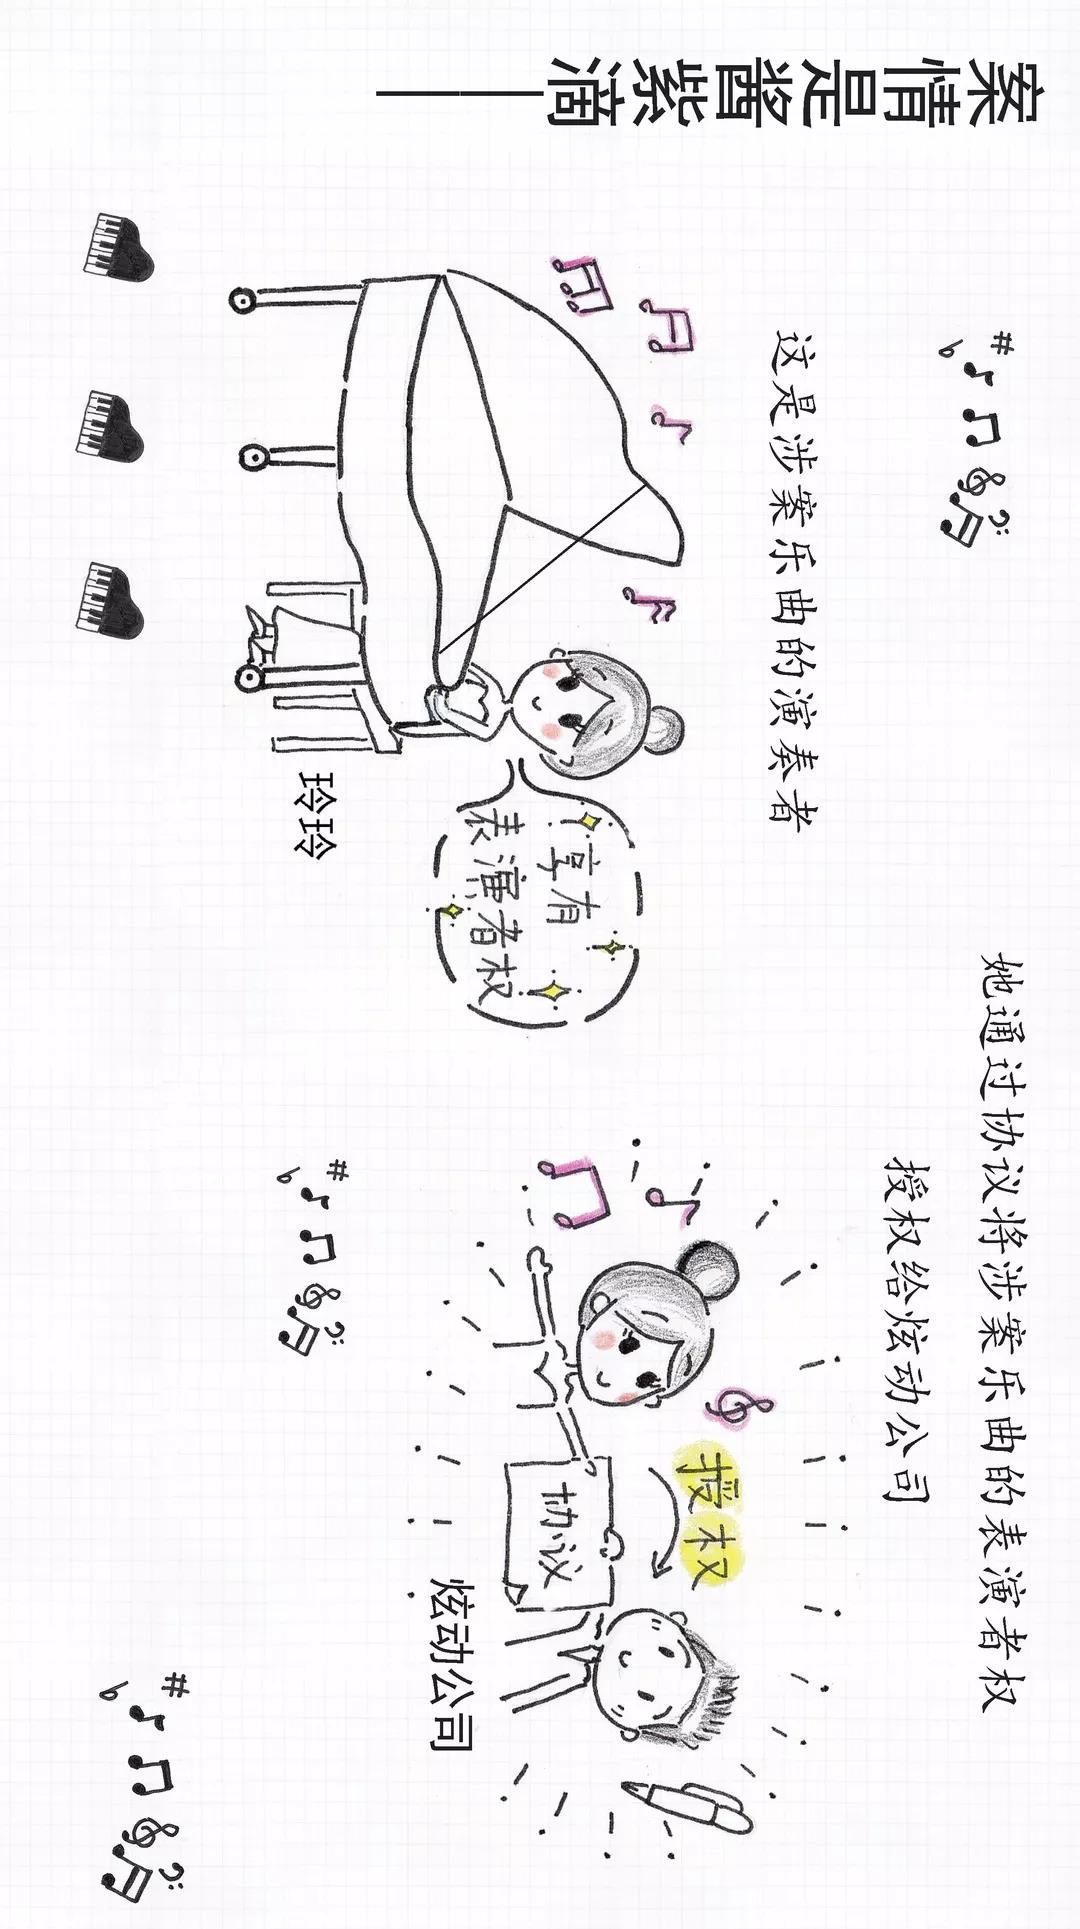 案情是酱紫滴———
这是涉案乐曲的演奏者
享有
表演者权
玲玲
她通过协议将涉案乐曲的表演者权
授权给炫动公司
授权
协议
炫动公司